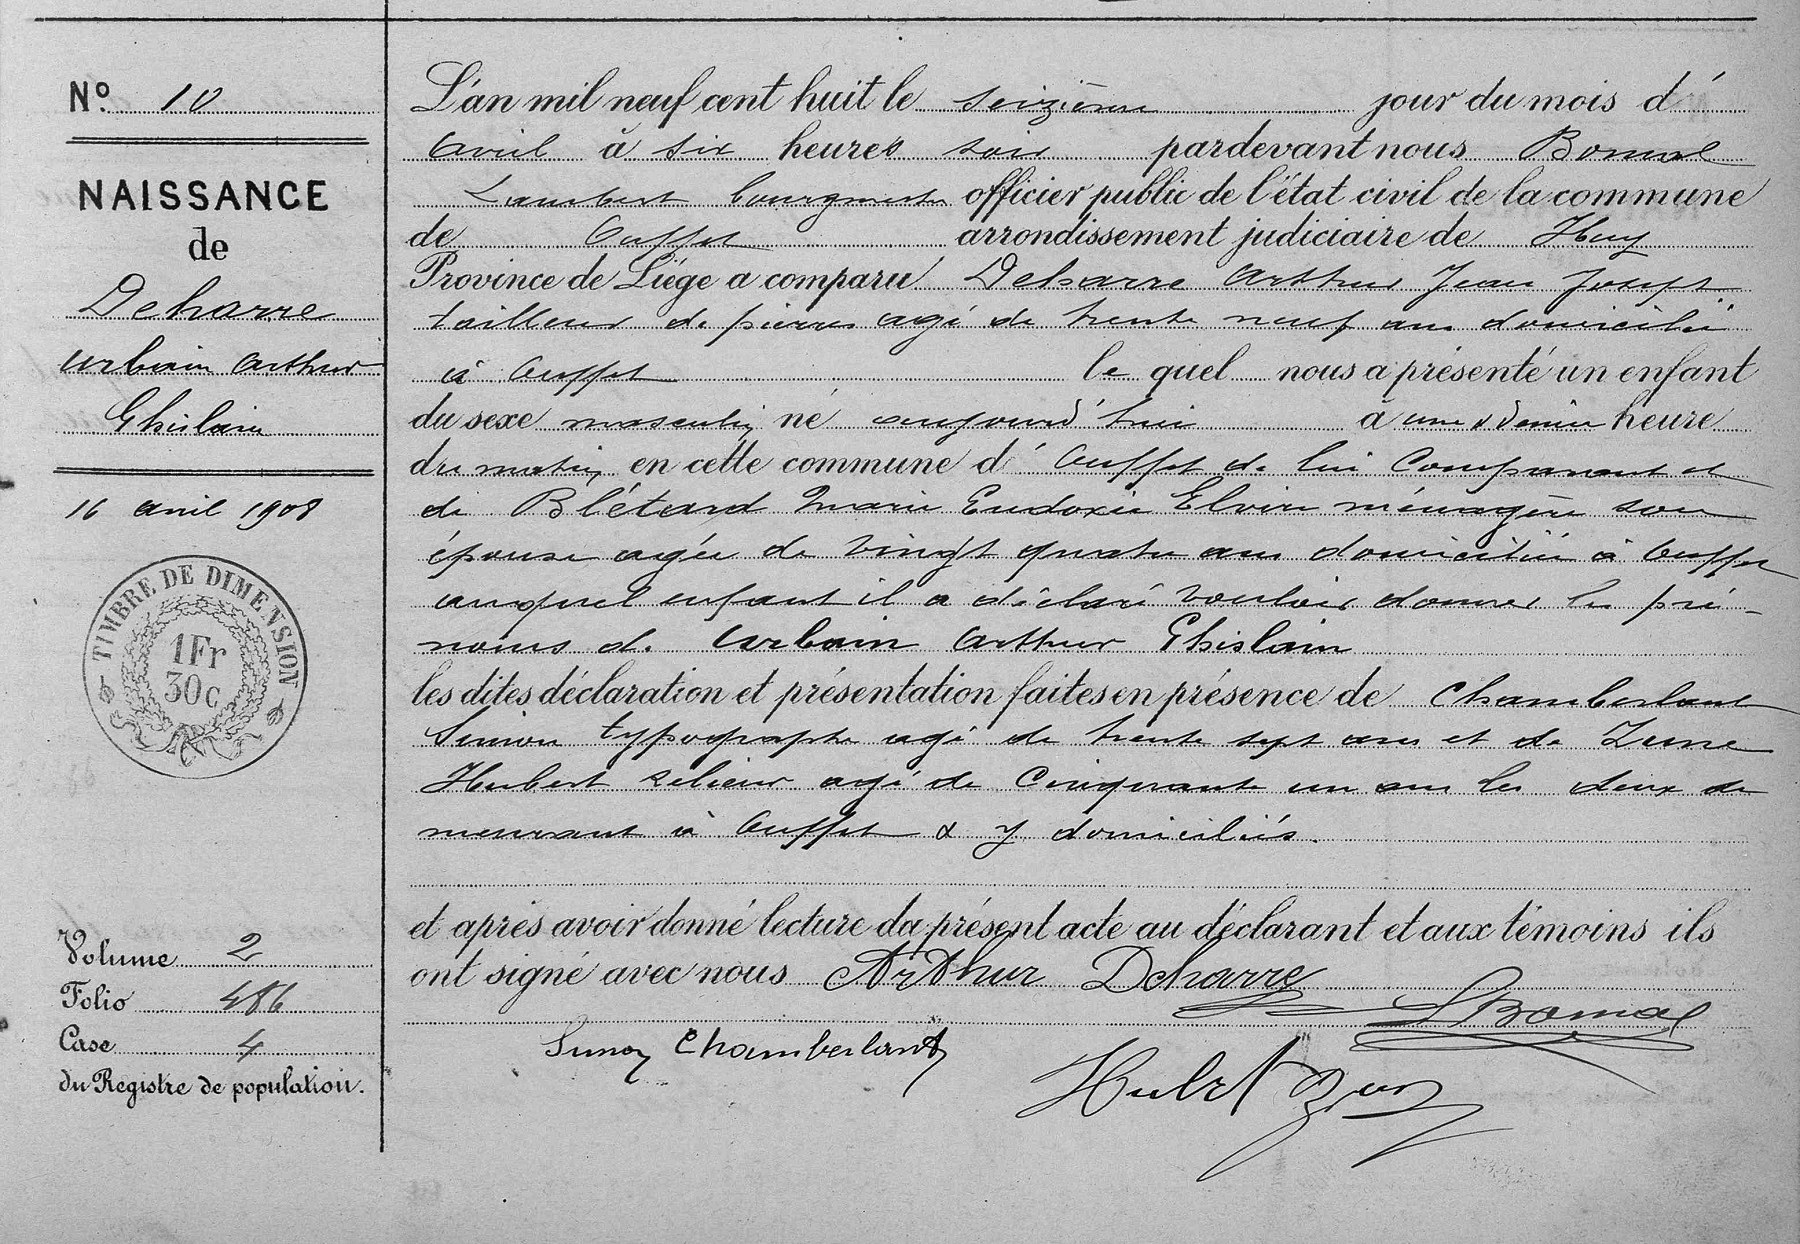 N.º 10
NAISSANCE
de
Deharre
Urbain Arthur
Ghislain
16 avril 1908
TIMBRE DE DIMENSION
1Fr
30c
Volume 2
Folio 486
Case 4
du Registre de population.
L'an mil neuf cent huit le seizième jour du mois d'
Avril à six heures soir pardevant nous Bomal
Lambert bourgmestre officier public de l'état civil de la commune
de Ouffet arrondissement judiciaire de Huy
Province de Liége a comparu Deharre Arthur Jean Joseph
tailleur de pierres agé de trente neuf ans domicilié
à Ouffet le quel nous a présenté un enfant
du sexe masculin né aujourd'hui à une & demie heure
du matin, en cette commune d'Ouffet de lui Comparant et
de Blétard Marie Eudoxie Elvire ménagère son
épouse agée de vingt quatre ans domiciliée à Ouffet
auquel enfant il a déclaré vouloir donner les pré-
noms de Urbain Arthur Ghislain
les dites déclaration et présentation faites en présence de Chamberlant
Simon typographe agé de trente sept ans et de
Hubert relieur agé de Cinquante un ans les deux de
meurant à Ouffet & y domiciliés.
et après avoir donné lecture du présent acte au déclarant et aux témoins ils
ont signé avec nous Arthur Deharre
L Bomal
Simon Chamberlant
Hubert